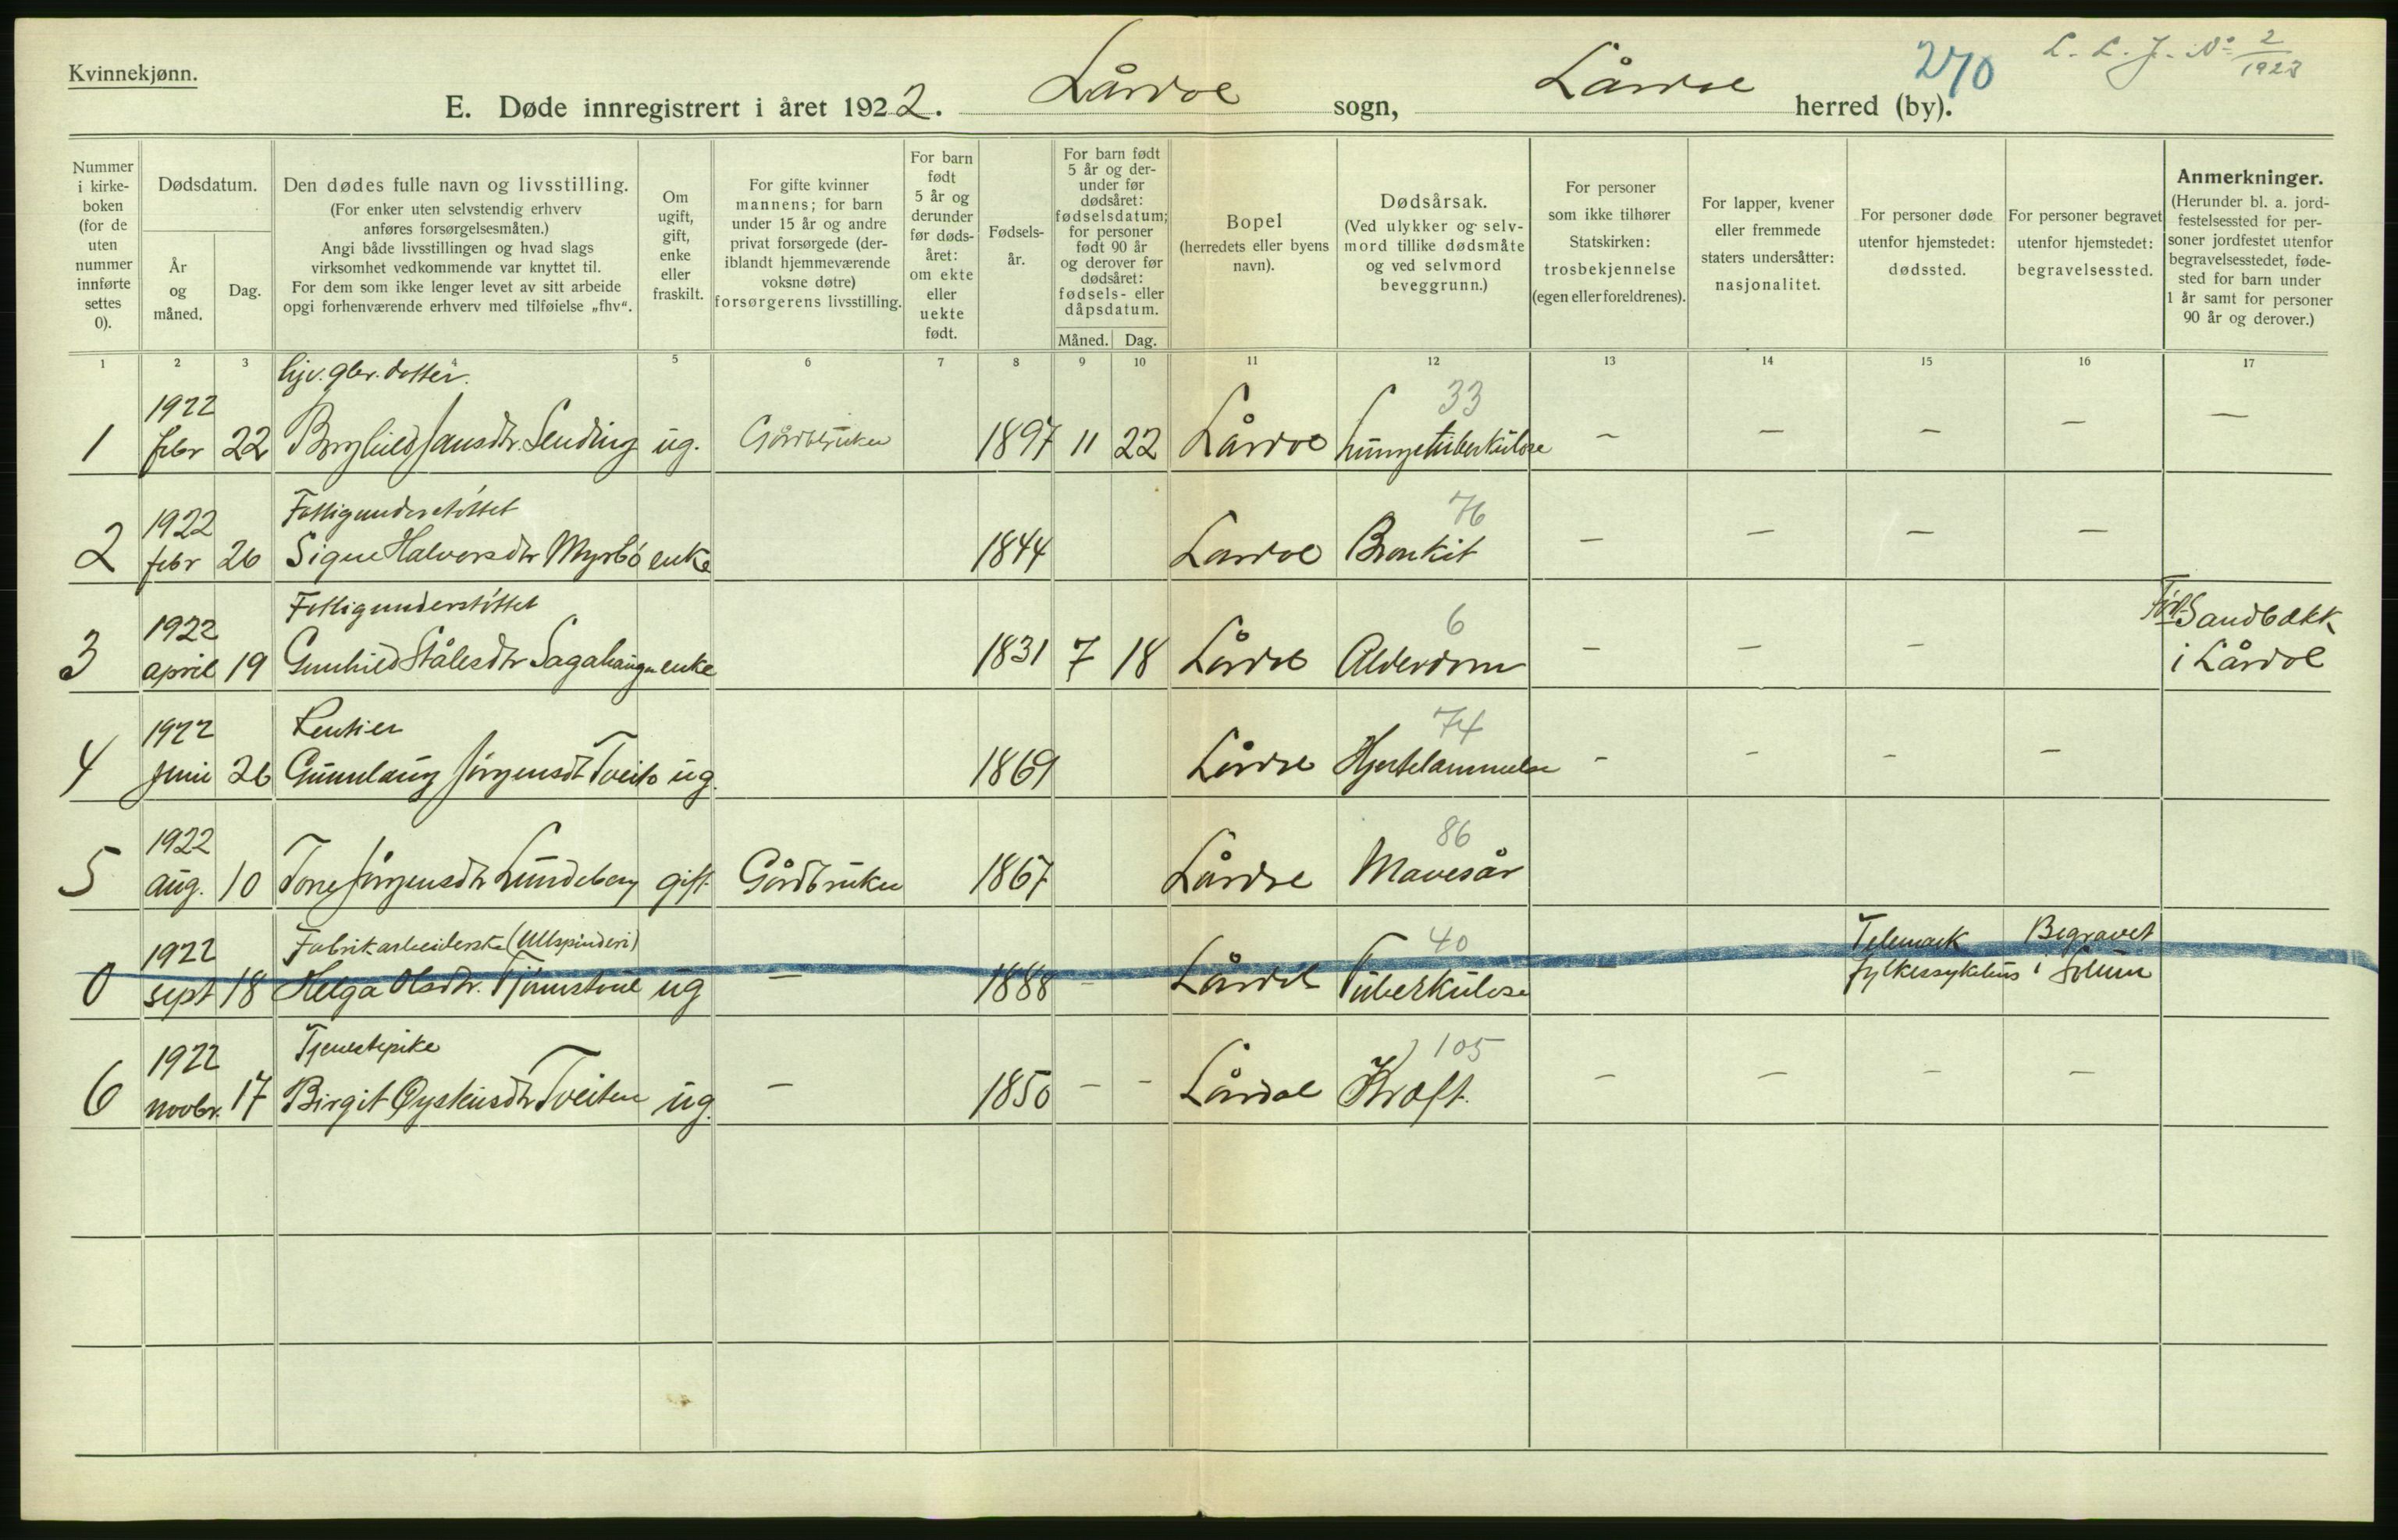 Kvinnekjønn.
L. L. J. No 2/1923
270
E. Døde innregistrert i året 1922. Lårdal sogn, Lårdal herred (by).
Nummer i kirke-boken (for de uten nummer innførte settes 0).
Dødsdatum.
År og måned.
Dag.
Den dødes fulle navn og livsstilling.
(For enker uten selvstendig erhverv
anføres forsørgelsesmåten.)
Angi både livsstillingen og hvad slags
virksomhet vedkommende var knyttet til.
For dem som ikke lenger levet av sitt arbeide
opgi forhenværende erhverv med tilføielse „fhv“.
Om ugift, gift, enke eller fraskilt.
For gifte kvinner
mannens; for barn
under 15 år og andre
privat forsørgede (der-
iblandt hjemmeværende
voksne døtre)
forsørgerens livsstilling.
For barn født 5 år og derunder før døds-året: om ekte eller uekte født.
Fødsels-år.
For barn født 5 år og der-under før dødsåret: fødselsdatum; for personer født 90 år og derover før dødsåret: fødsels- eller dåpsdatum.
Måned. Dag.
Bopel
(herredets eller byens navn).
Dødsårsak.
(Ved ulykker og selv-
mord tillike dødsmåte
og ved selvmord
beveggrunn.)
For personer
som ikke tilhører
Statskirken:
trosbekjennelse
(egen eller foreldrenes).
For lapper, kvener
eller fremmede
staters undersåtter:
nasjonalitet.
For personer døde
utenfor hjemstedet:
dødssted.
For personer begravet
utenfor hjemstedet:
begravelsessted.
Anmerkninger.
(Herunder bl. a. jord-
festelsessted for per-
soner jordfestet utenfor
begravelsesstedet, føde-
sted for barn under
1 år samt for personer
90 år og derover.)
1 2 3 4 5 6 7 8 9 10 11 12 13 14 15 16 17
hjv. gbr. datter.
1922 33
1 febr 22 Borghild Jansdtr. Lending ug. Gårdbruker 1897 11 22 Lårdal Lungetuberkulose – – – – –
Fattigunderstøttet
1922 76
2 febr 26 Signe Halvorsdtr Myrbø enke 1844 Lardal Bronkit – – – –
Fattigunderstøttet
1922 6 Fød. Sandbækk
3 april 19 Gunhild Ståles dtr Sagahaugen enke 1831 7 18 Lårdal Alderdom – – – i Lårdal
Rentier
1922 74
4 juni 26 Gunnlaug Jørgensdt Tveito ug. 1869 Lårdal Hjertelammelse – – – –
1922 86
5 aug. 10 Tone Jørgensdtr Lundeberg gift Gårdbruker 1867 Lårdal Mavesår
1922 Fabrikarbeiderske (Ullspinderi) 40 Telemark Begravet
0 sept 18 Helga Olsdtr. Tjønnstoul ug – 1888 – Lårdal Tuberkulose – fylkessykehus i Solum
Tjenestepike
1922 105
6 novbr. 17 Birgit Øysteinsdtr Tveiten ug. – 1850 – – Lårdal Kræft. – – – –